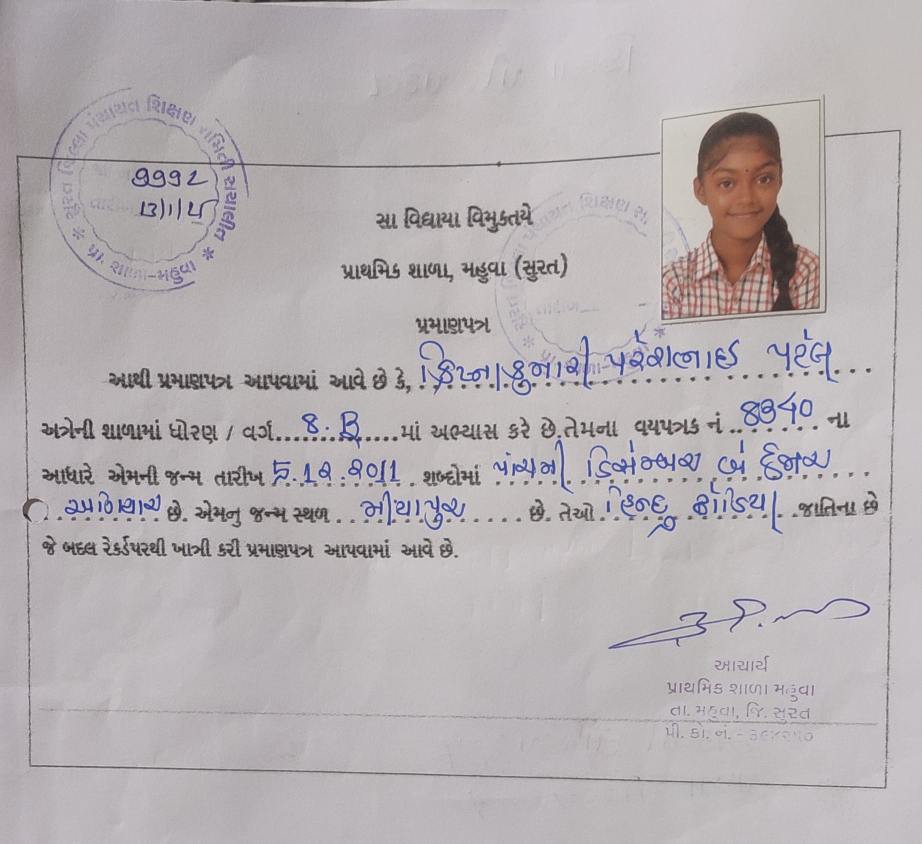 સુરત જિલ્લા પંચાયત શિક્ષણ સમિતી સંચાલીત
પ્રા. શાળા-મહુવા
૧૧૧૨
13/1/25
સા વિદ્યાયા વિમુક્તયે
પ્રાથમિક શાળા, મહુવા (સુરત)
પ્રમાણપત્ર
આથી પ્રમાણપત્ર આપવામાં આવે છે કે, ક્રિષ્નાકુમારી પરેશભાઈ પટેલ
અત્રેની શાળામાં ધોરણ / વર્ગ 8. B માં અભ્યાસ કરે છે.તેમના વયપત્રક નં ના
આધારે એમની જન્મ તારીખ 5.12.2011 શબ્દોમાં પાંચમી ડિસેમ્બર બે હજાર
અગિયાર છે. એમનુ જન્મ સ્થળ મીયાપુર છે. તેઓ હિન્દુ ધોડિયા જાતિના છે
જે બદલ રેકર્ડપરથી ખાત્રી કરી પ્રમાણપત્ર આપવામાં આવે છે.
આચાર્ય
પ્રાથમિક શાળા મહુવા
તા. મહુવા, જિ. સુરત
પી. કો. ન. - ૩૯૪૨૫૦